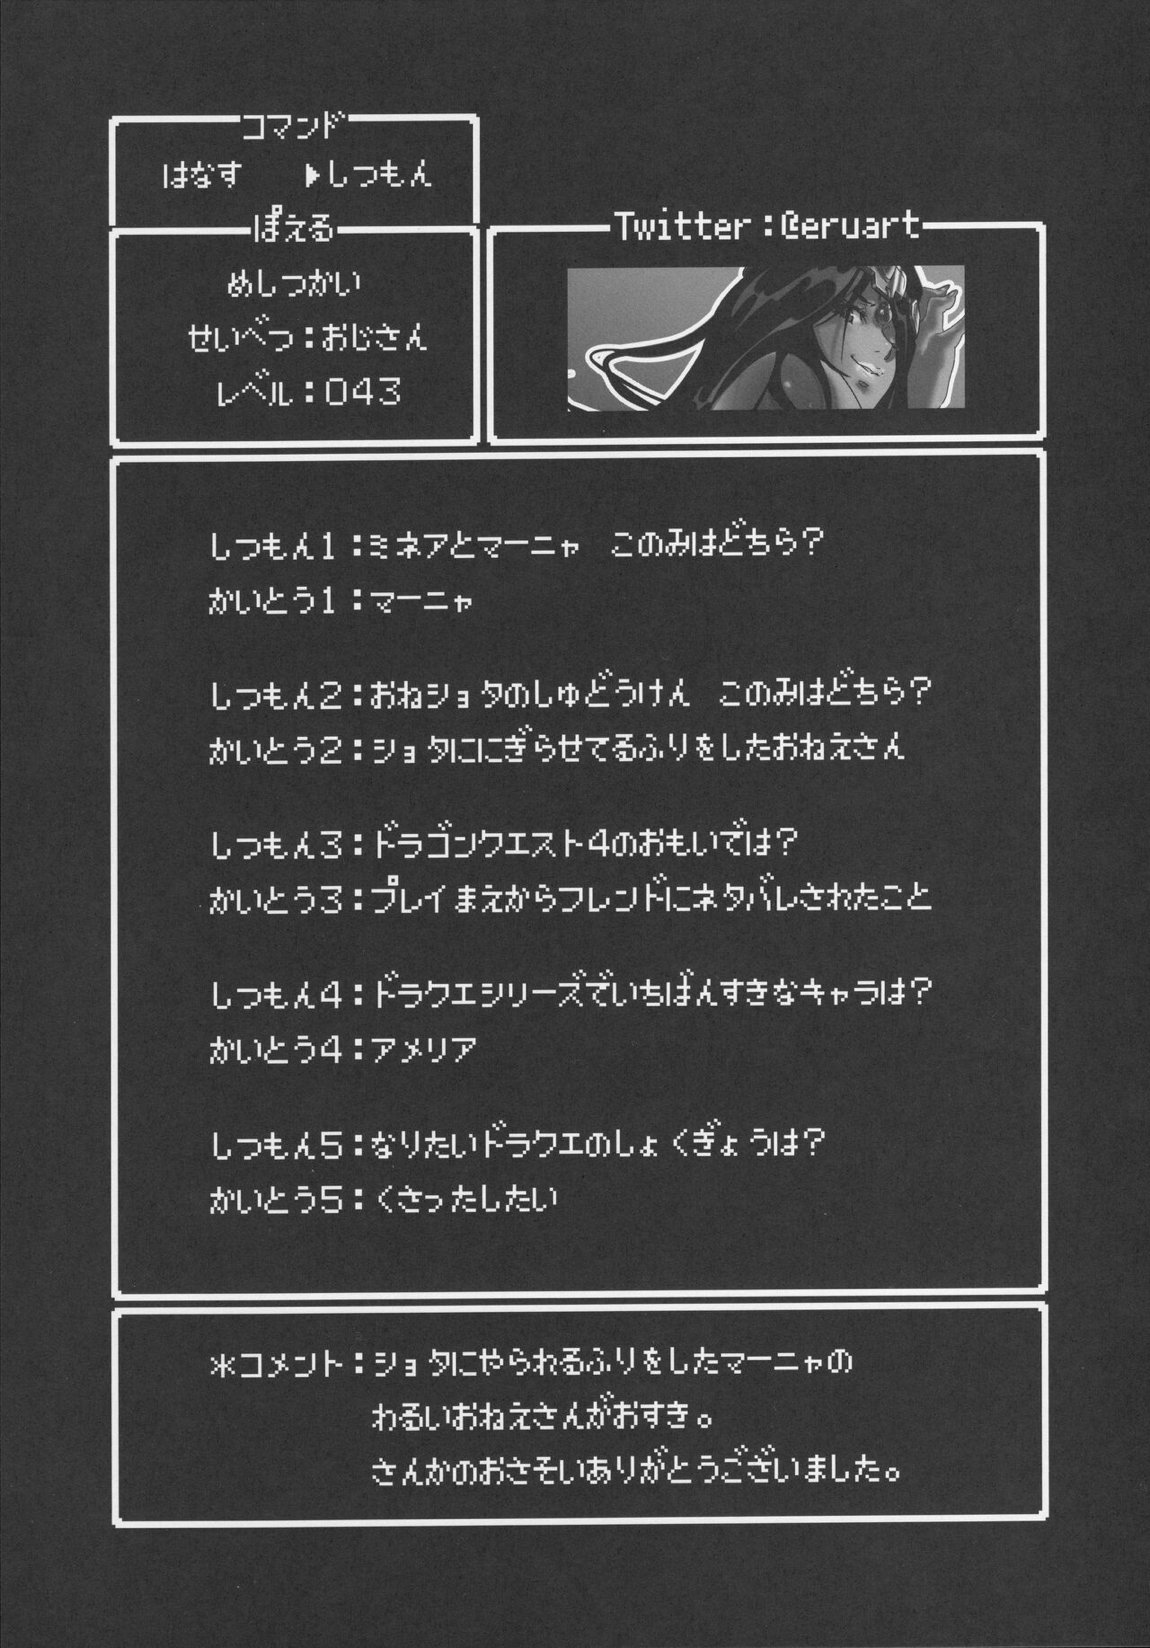 コマンド
はなす ▶しつもん
ぽえる
めしつかい
せいべつ：おじさん
レベル：043
Twitter：@eruart
しつもん1：ミネアとマーニャ このみはどちら？
かいとう1：マーニャ
しつもん2：おねショタのしゅどうけん このみはどちら？
かいとう2：ショタににぎらせてるふりをしたおねえさん
しつもん3：ドラゴンクエスト4のおもいでは？
かいとう3：プレイまえからフレンドにネタバレされたこと
しつもん4：ドラクエシリーズでいちばんすきなキャラは？
かいとう4：アメリア
しつもん5：なりたいドラクエのしょくぎょうは？
かいとう5：くさったしたい
＊コメント：ショタにやられるふりをしたマーニャの
わるいおねえさんがおすき。
さんかのおさそいありがとうございました。